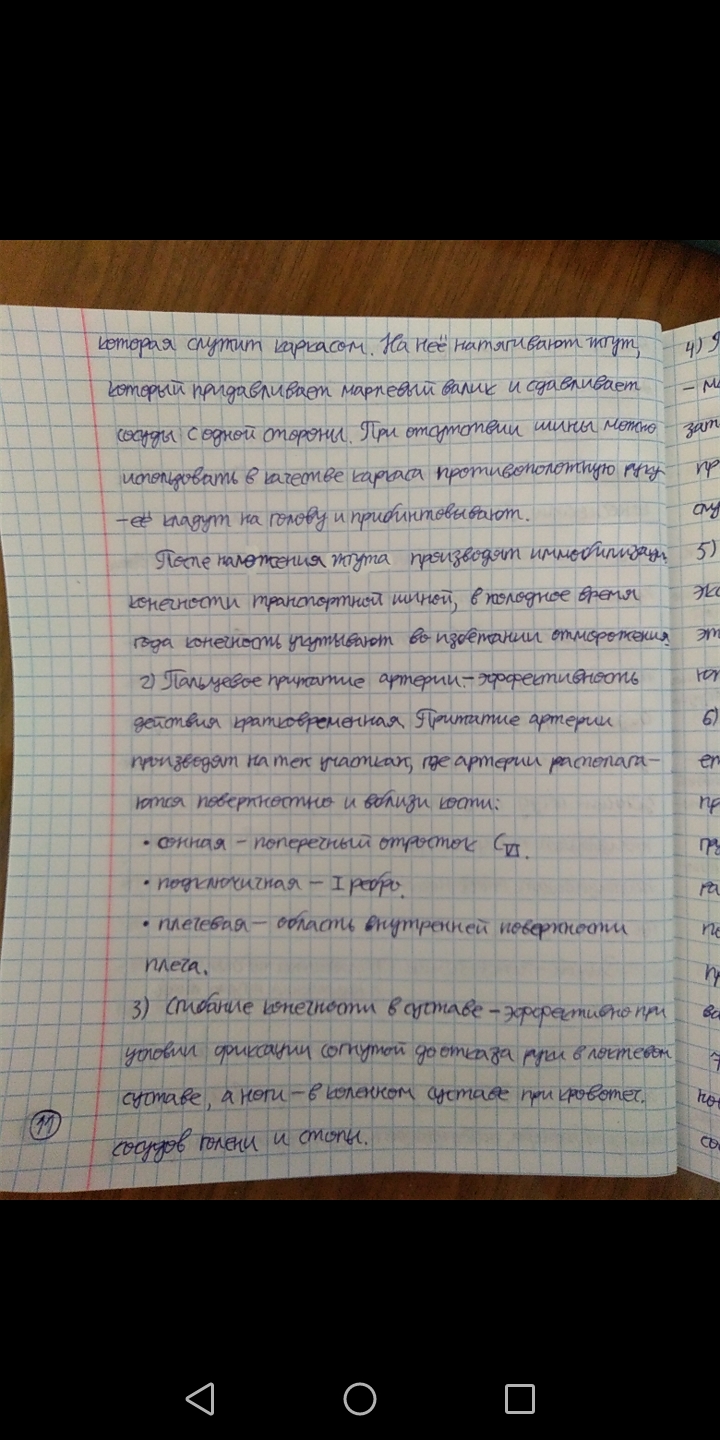 которая служит каркасом. На неё натягивают жгут,
который придавливает марлевый валик и сдавливает
сосуды с одной стороны. При отсутствии шины можно
использовать в качестве каркаса противоположную руку
- её кладут на голову и прибинтовывают.
После наложения жгута производят иммобилизаци
конечности транспортной шиной, в холодное время
года конечность укутывают во избежании отморожения.
2) Пальцевое прижатие артерии - эффективность
действия кратковременная. Прижатие артерии
производят на тех участках, где артерии располага-
ются поверхностно и вблизи кости:
• сонная - поперечный отросток CVI.
• подключичная - I ребро.
• плечевая - область внутренней поверхности
плеча.
3) Сгибание конечности в суставе - эффективно при
условии фиксации согнутой до отказа руки в локтевом
суставе, а ноги - в коленном суставе при кровотеч.
сосудов голени и стопы.
11
4)
зат
пр
слу
5)
экс
эт
6)